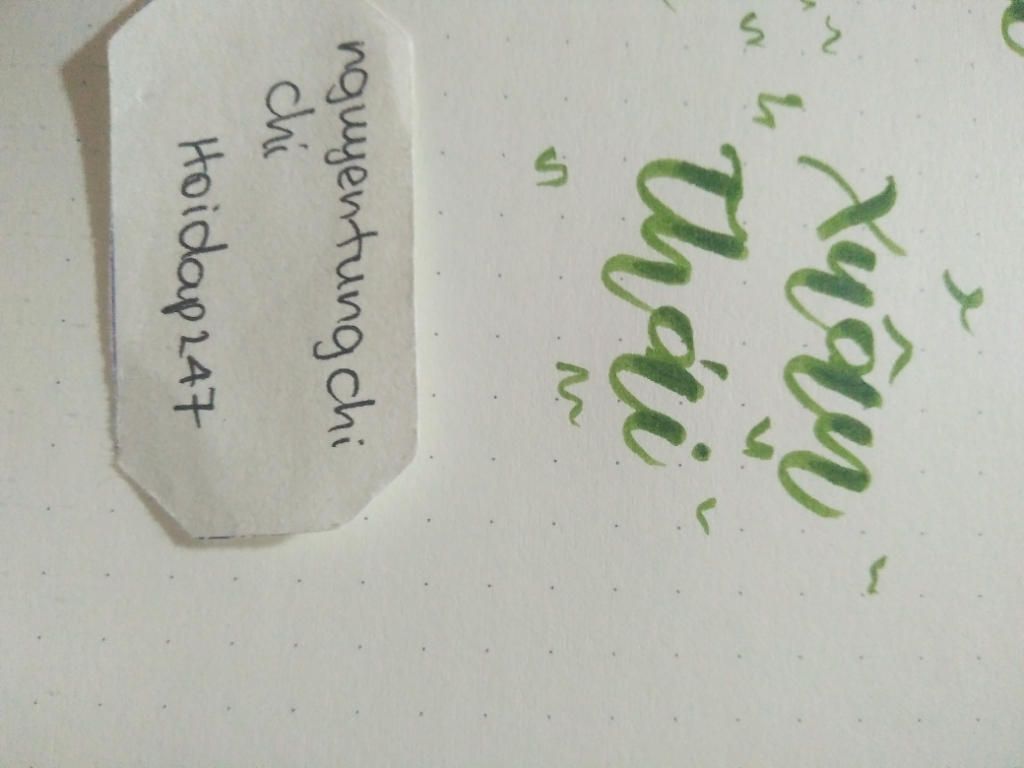 Xuân
Thái
nguyentungchi
chi
Hoidap247